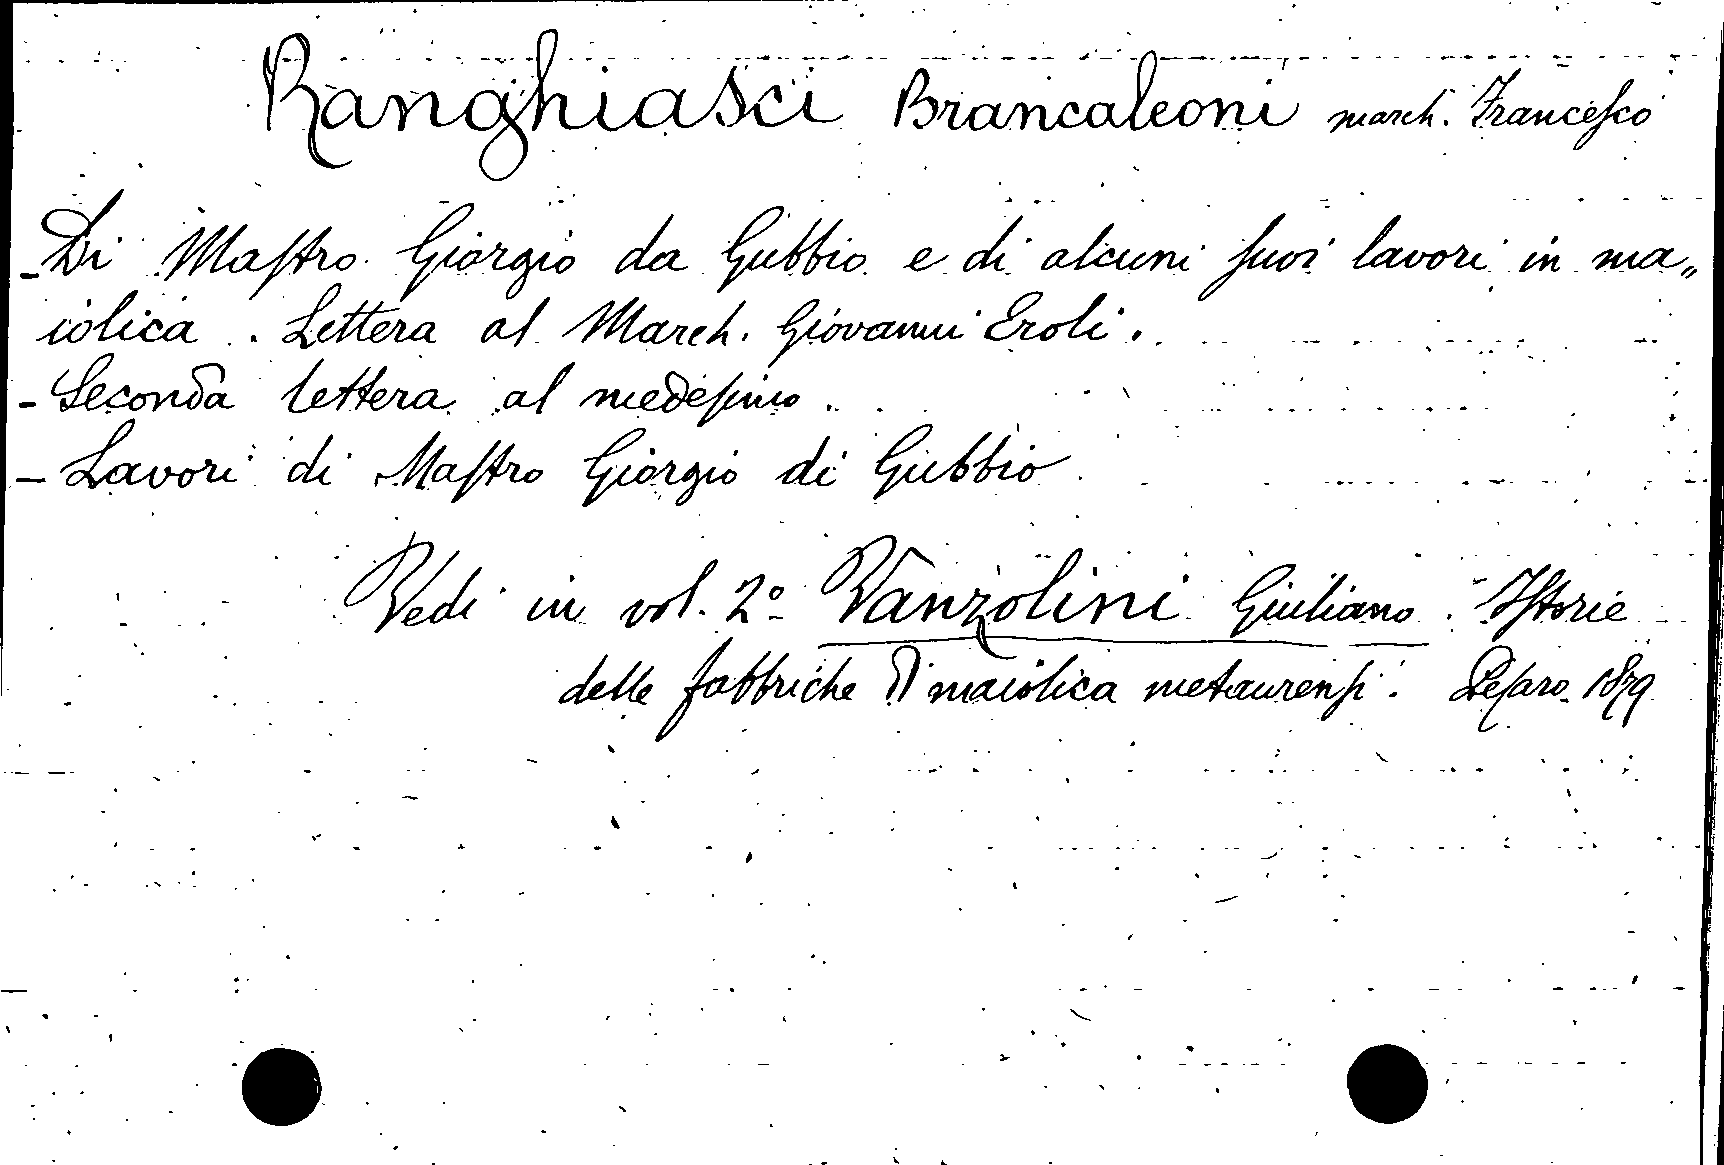 Ranghiasci Brancaleoni march. Francesco
- Di Mastro Giorgio da Gubbio e di alcuni suoi lavori in ma„
iolica. Lettera al March. Giovanni Eroli.
- Seconda lettera al medesimo.
- Lavori di Mastro Giorgio di Gubbio
Vedi in vol. 2º Vanzolini Giuliano. Istorie
delle fabbriche di maiolica metaurensi. Pesaro 1879